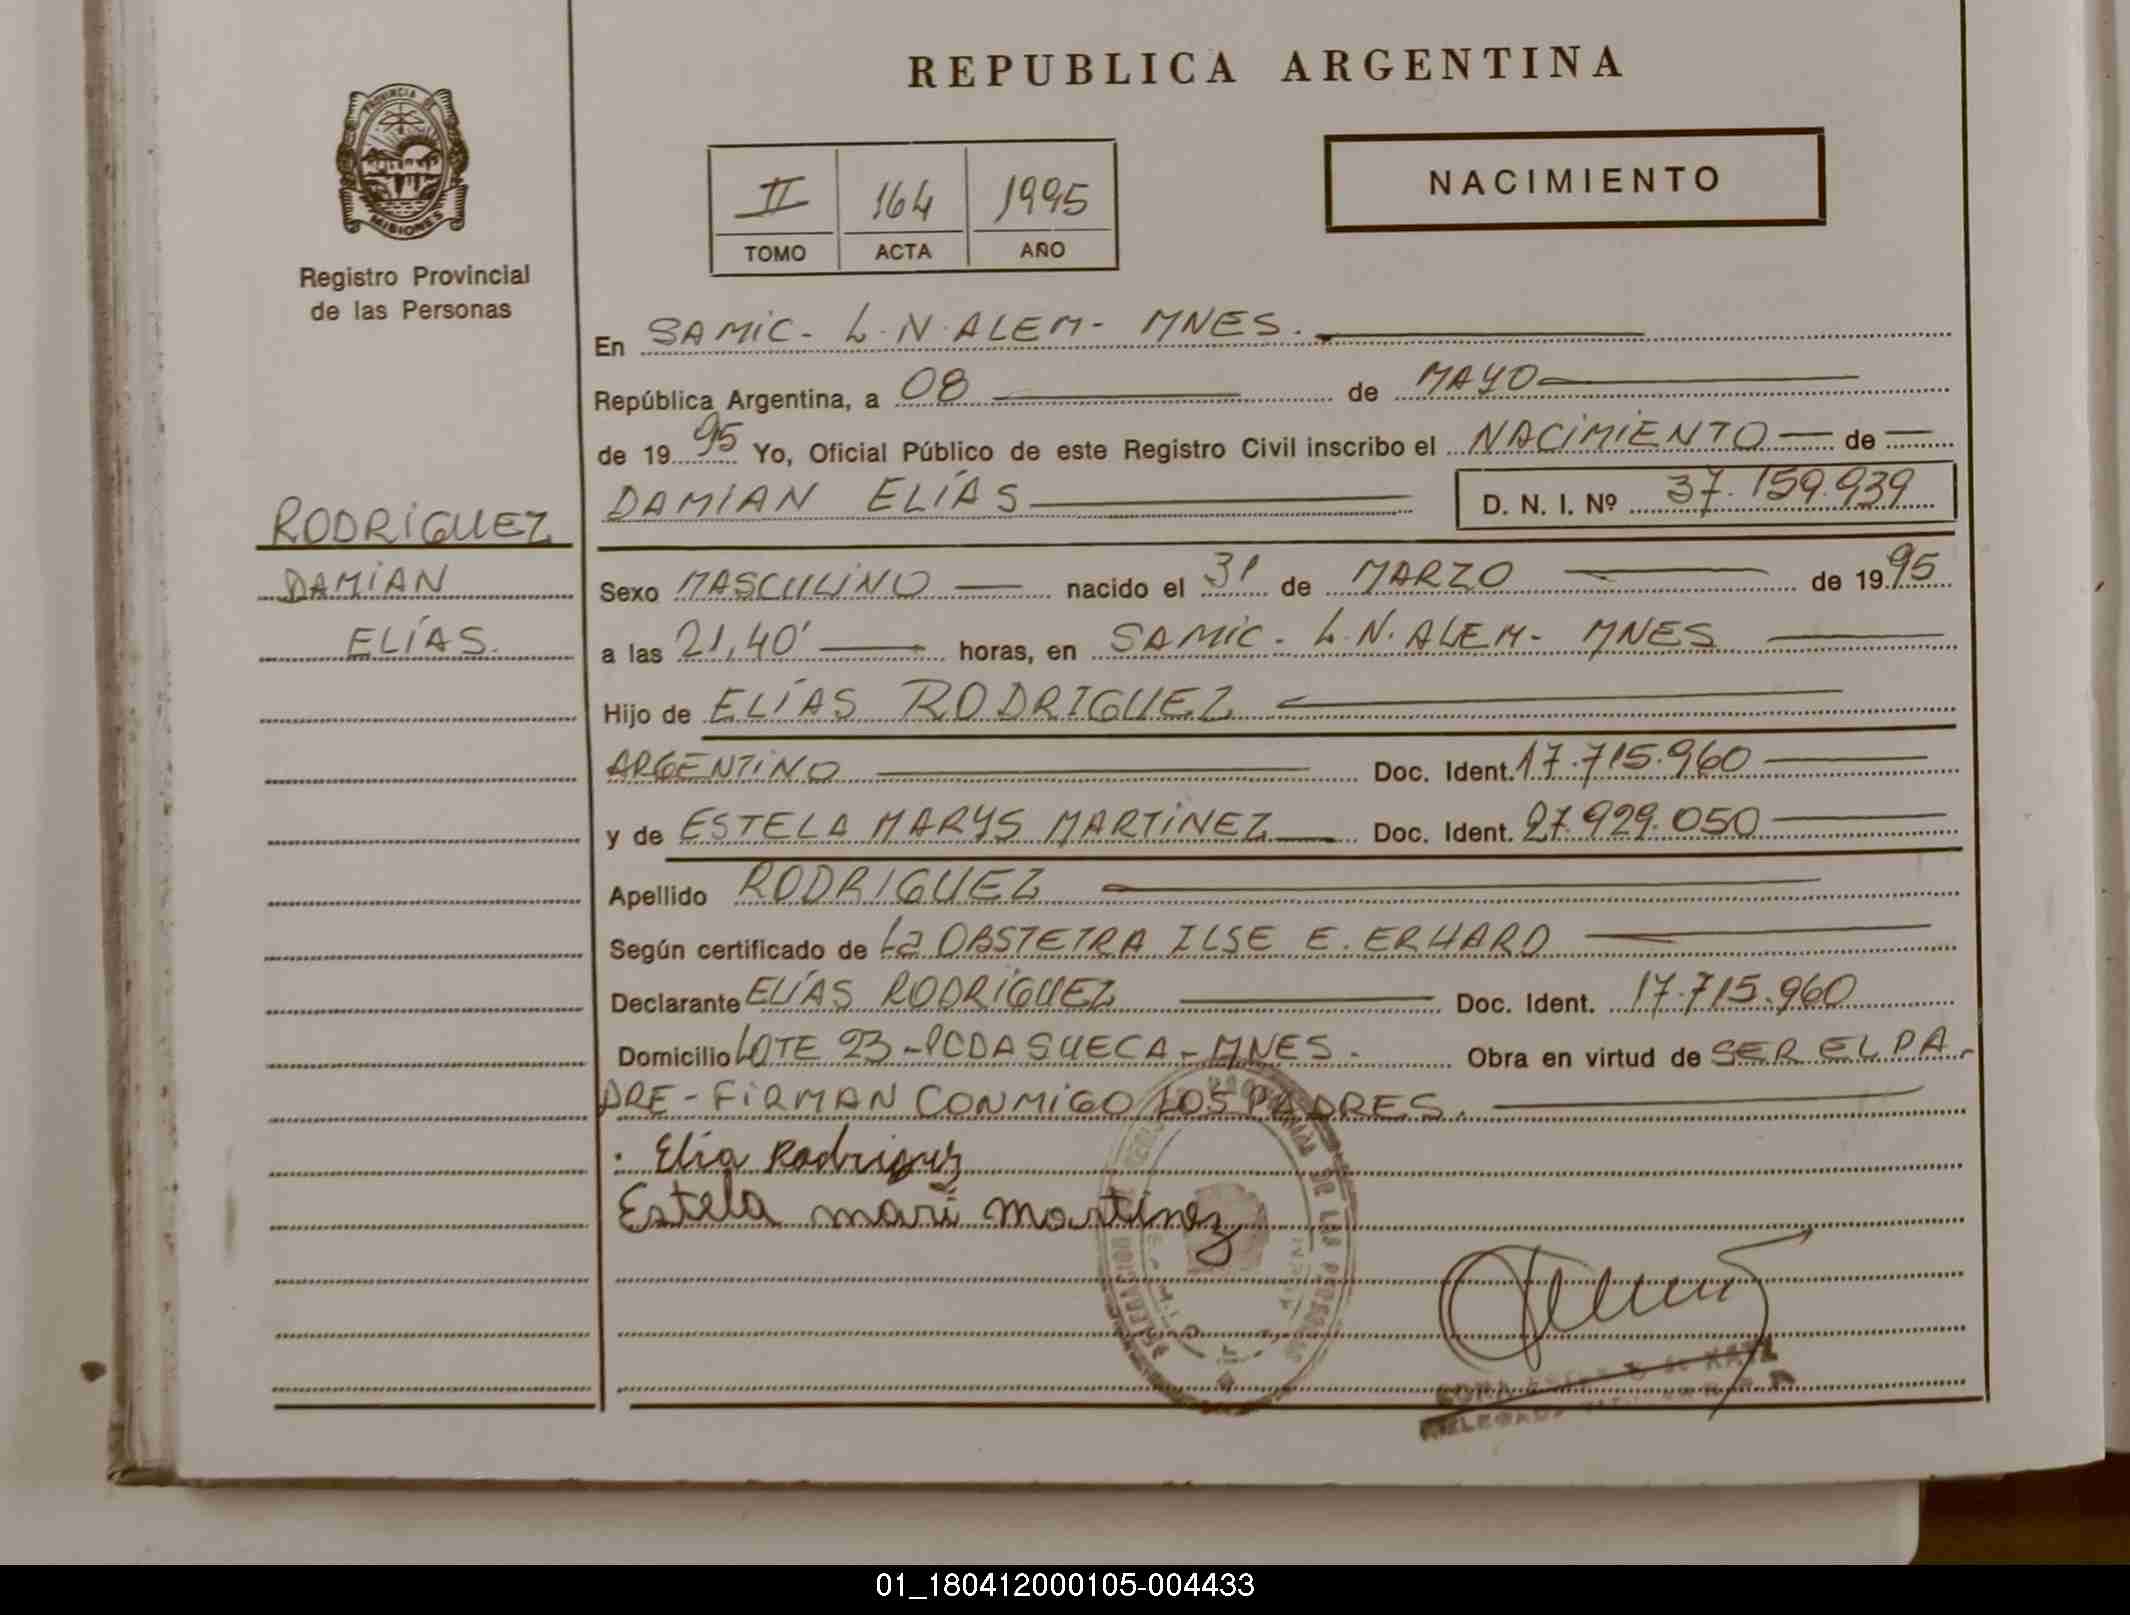 PROVINCIA DE
MISIONES
Registro Provincial
de las Personas
RODRIGUEZ
DAMIAN
ELÍAS.
REPUBLICA ARGENTINA
II 164 1995
TOMO ACTA AÑO
NACIMIENTO
En SAMIC - L.N. ALEM - MNES.
República Argentina, a 08 de MAYO
de 1995 Yo, Oficial Público de este Registro Civil inscribo el NACIMIENTO de
DAMIAN ELÍAS D. N. I. Nº 37.159.939
Sexo MASCULINO nacido el 31 de MARZO de 1995
a las 21,40' horas, en SAMIC - L.N. ALEM - MNES
Hijo de ELÍAS RODRIGUEZ
ARGENTINO Doc. Ident. 17.715.960
y de ESTELA MARYS MARTINEZ Doc. Ident. 27.929.050
Apellido RODRIGUEZ
Según certificado de La OBSTETRA ILSE E. ERHARD
Declarante ELÍAS RODRÍGUEZ Doc. Ident. 17.715.960
Domicilio LOTE 23 - PCDA SUECA - MNES. Obra en virtud de SER EL PA-
DRE - FIRMAN CONMIGO LOS PADRES.
Elia Rodriguez
Estela mari martinez
DE LAS PERSONAS
01_180412000105-004433